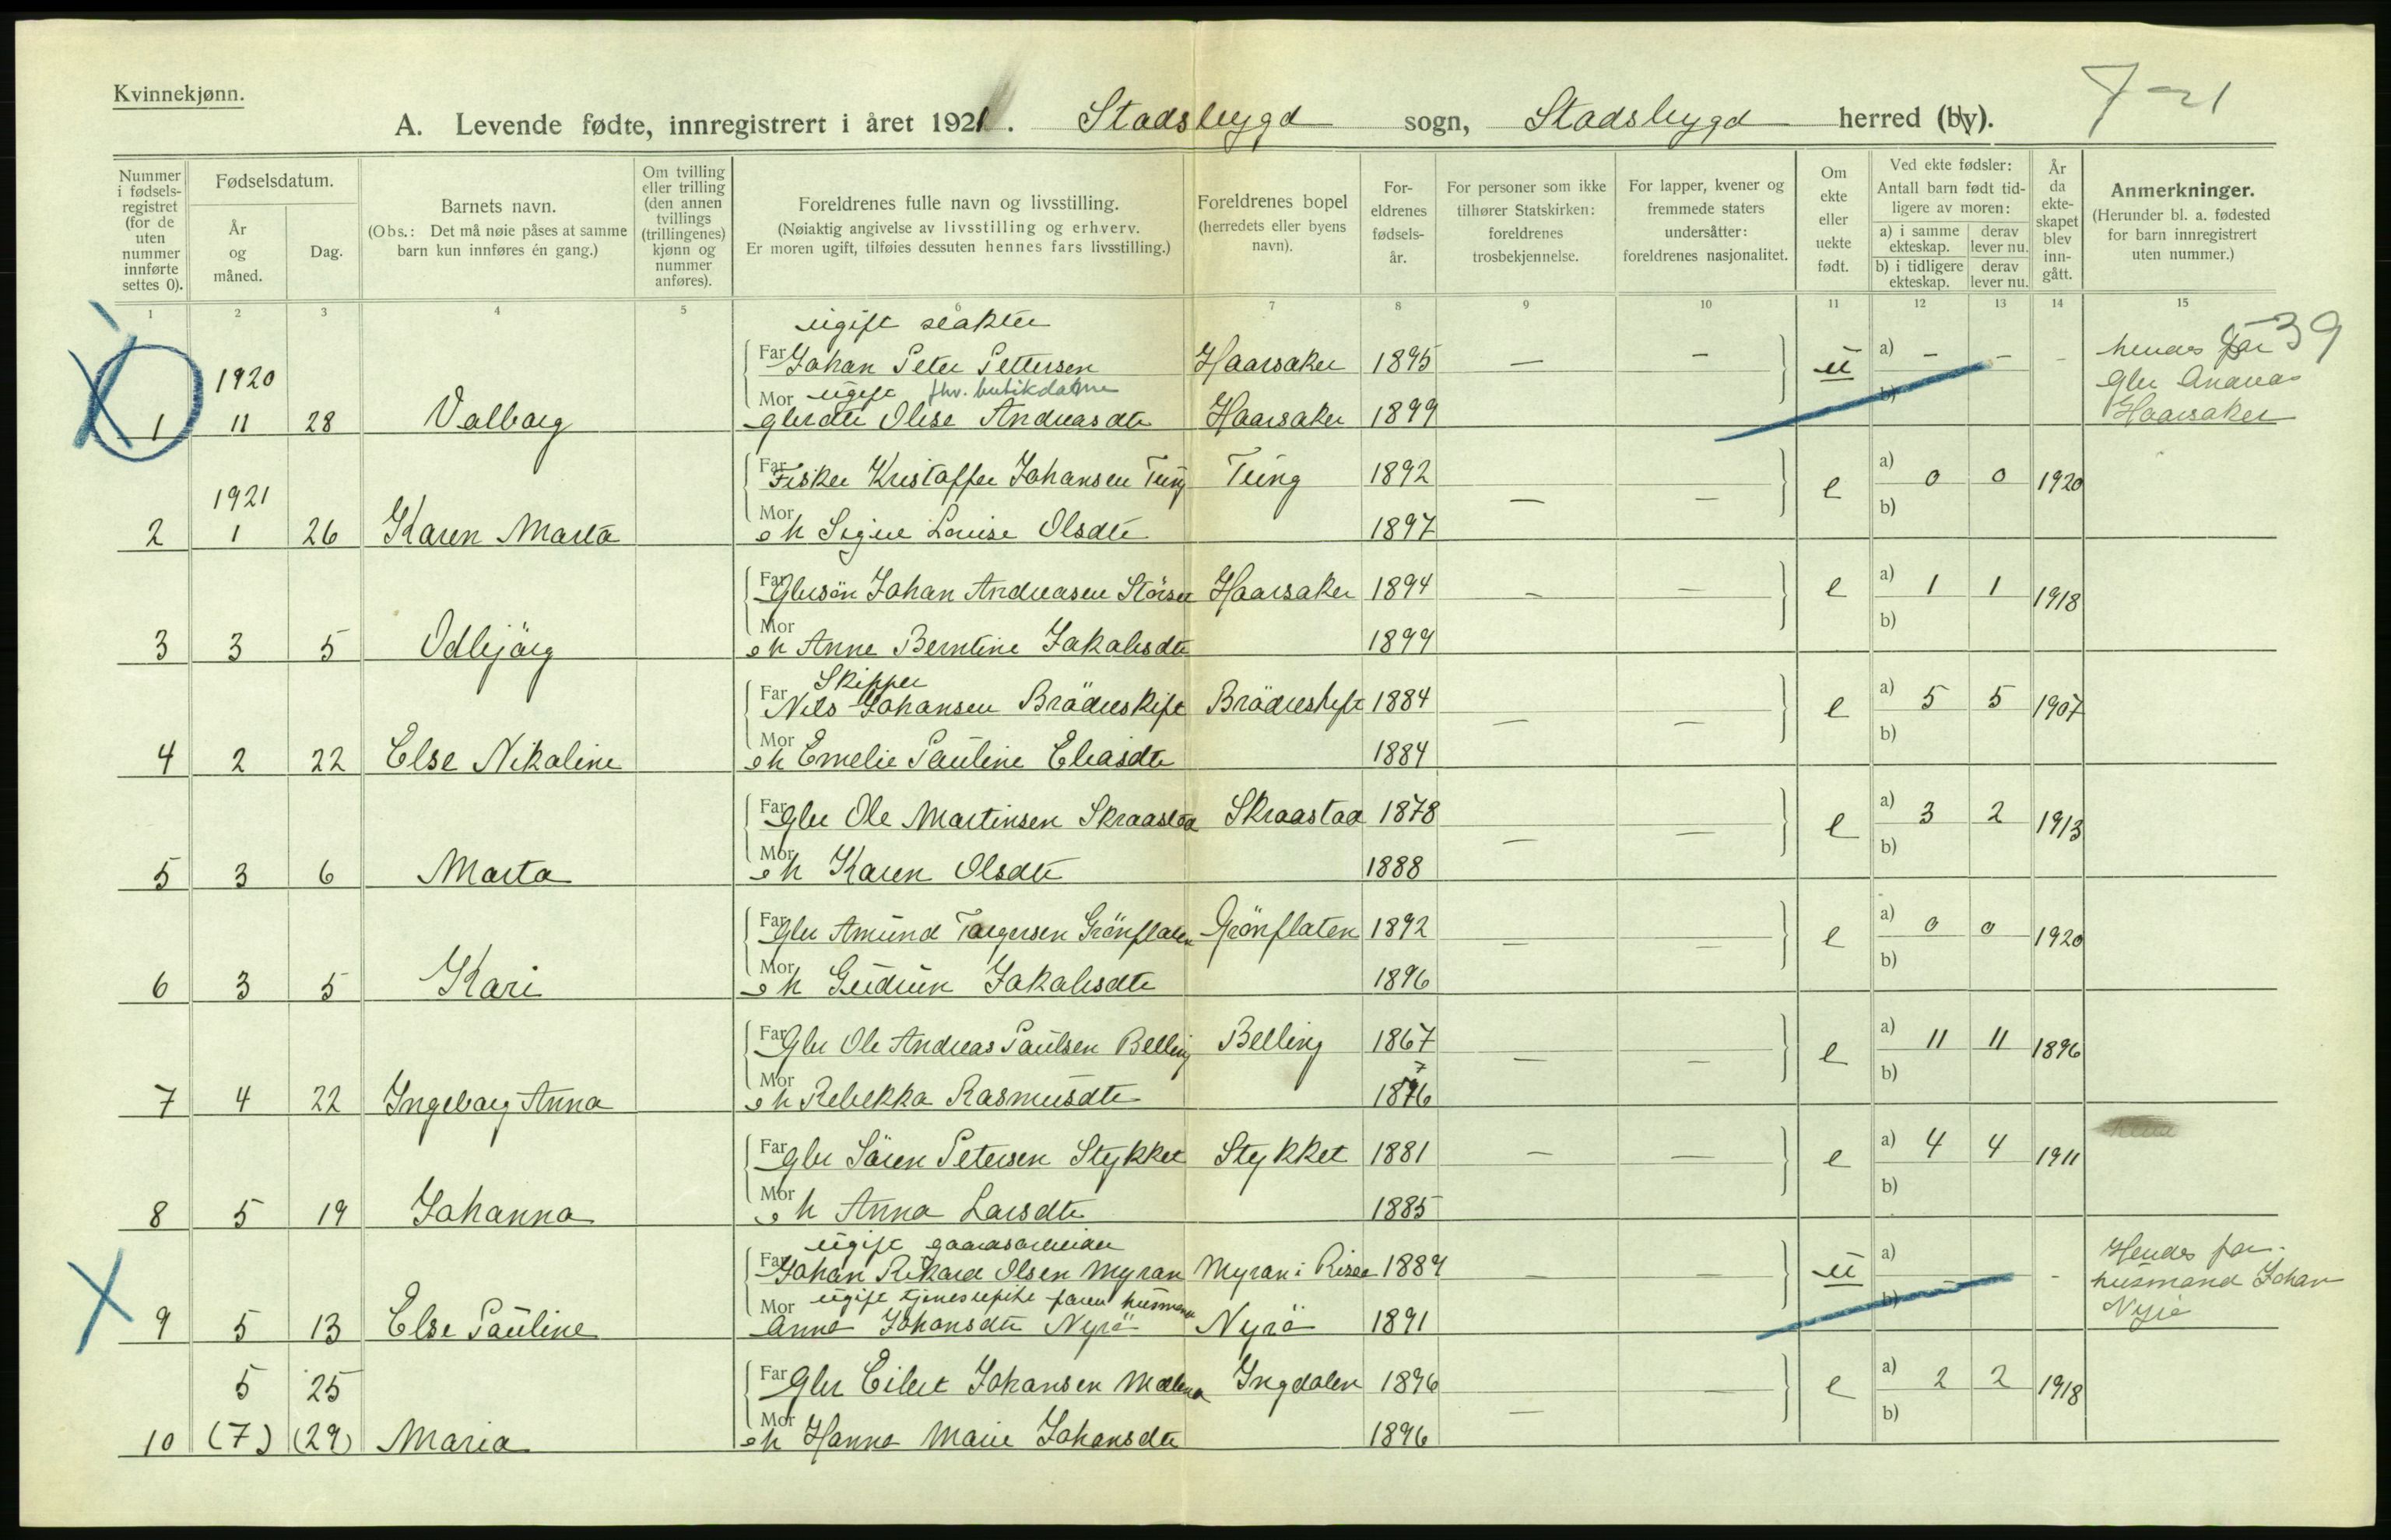 Kvinnekjønn.
A. Levende fødte, innregistrert i året 1921. Stadsbygd sogn, Stadsbygd herred (by). 7-21
Nummer i fødselsregistret (for de uten nummer innførte settes 0).
Fødselsdatum.
År og måned.
Dag.
Barnets navn.
(Obs.: Det må nøie påses at samme barn kun innføres én gang.)
Om tvilling eller trilling (den annen tvillings (trillingenes) kjønn og nummer anføres).
Foreldrenes fulle navn og livsstilling.
(Nøiaktig angivelse av livsstilling og erhverv.
Er moren ugift, tilføies dessuten hennes fars livsstilling.)
Foreldrenes bopel
(herredets eller byens navn).
Foreldrenes fødselsår.
For personer som ikke tilhører Statskirken: foreldrenes trosbekjennelse.
For lapper, kvener og fremmede staters undersåtter: foreldrenes nasjonalitet.
Om ekte eller uekte født.
Ved ekte fødsler:
Antall barn født tidligere av moren:
a) i samme ekteskap. derav lever nu.
b) i tidligere ekteskap. derav lever nu.
År da ekteskapet blev inngått.
Anmerkninger.
(Herunder bl. a. fødested for barn innregistrert uten nummer.)
1 2 3 4 5 6 7 8 9 10 11 12 13 14 15
ugift
Far Johan Peter Pettersen Haarsaker 1895 — — u a) - - - hendes far 39
1920 Gbr Andreas
Mor ugift fhv. butikdame b) Haarsaker
1 11 28 Valborg gbrdtr Olise Andreasdtr Haarsaker 1899
Far Fisker Kristoffer Johansen Tung Tung 1892 — — e a) 0 0 1920
1921 b)
2 1 26 Karen Marta Mor oh Signe Louise Olsdtr 1897
Far Gbrsön Johan Andreasen Haarsaker 1894 — — e a) 1 1 1918
b)
3 3 5 Odbjörg Mor oh Anne Berntine Jakobsdtr 1899
Skipper
Far Nils Johansen Bröderskift Bröderskift 1884 — — e a) 5 5 1907
b)
4 2 22 Else Nikoline Mor oh Emelie Pauline Eliasdtr 1884
Far Gbr Ole Martinsen Skraastad Skraastad 1878 — — e a) 3 2 1913
b)
5 3 6 Marta Mor oh Karen Olsdtr 1888
Far Gbr Amund Torgersen Grönflaten Grönflaten 1892 — — e a) 0 0 1920
b)
6 3 5 Kari Mor oh Gudrun Jakobsdtr 1896
Far Gbr Ole Andreas Paulsen Belling Belling 1867 — — e a) 11 11 1896
b)
7 4 22 Ingeborg Anna Mor oh Rebekka Rasmusdtr 1876
Far Gbr Sören Petersen Stykket Stykket 1881 — — e a) 4 4 1911
b)
8 5 19 Johanna Mor oh Anna Larsdtr 1885
ugift gaardsarbeider
Far Johan Rikard Olsen Myran Myran i Rissa 1889 — — u a) - Hendes far
Mor ugift tjenestepike faren husmann b) husmand Johan
9 5 13 Else Pauline Anna Johansdtr Nyrö Nyrö 1891
5 25 Far Gbr Eilert Johansen Ingdalen 1896 — — e a) 2 2 1918
b)
10 (7) (29) Maria Mor oh Hanna Marie Johansdtr 1896